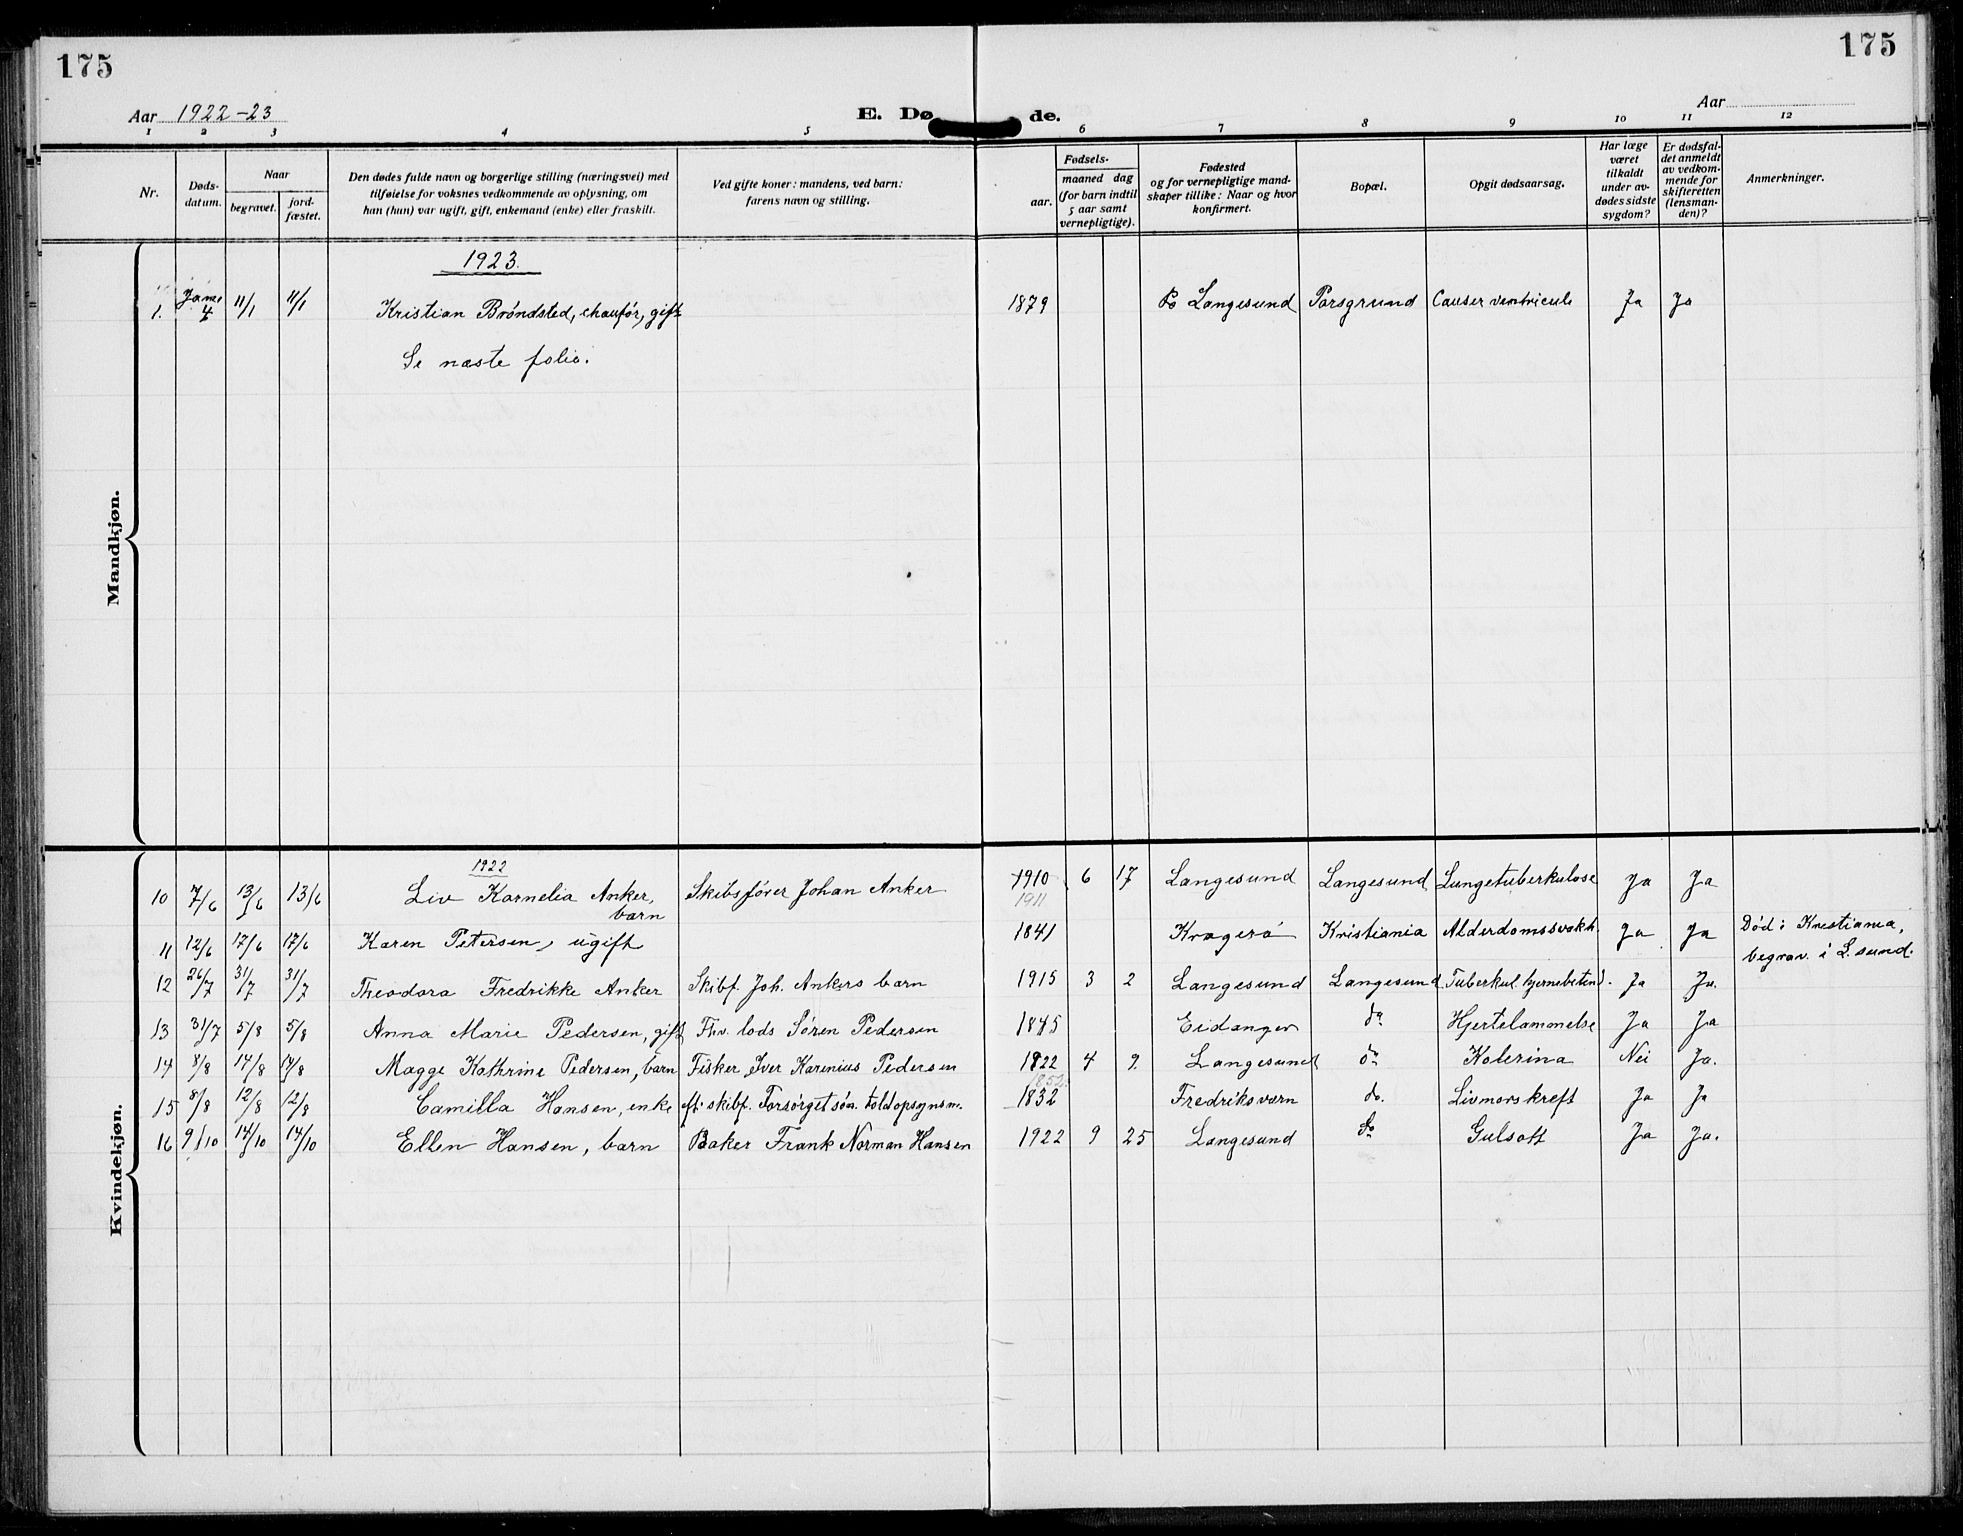 175
175
Aar 1922-23
E. Dø de.
Aar
1 2 3 4 5 6 7 8 9 10 11 12
Nr.
Døds-
datum.
Naar
begravet.
jord-
fæstet.
Den dødes fulde navn og borgerlige stilling (næringsvei) med
tilføielse for voksnes vedkommende av oplysning, om
han (hun) var ugift, gift, enkemand (enke) eller fraskilt.
Ved gifte koner: mandens, ved barn:
farens navn og stilling.
Fødsels-
aar.
maaned dag
(for barn indtil
5 aar samt
vernepligtige).
Fødested
og for vernepligtige mand-
skaper tillike: Naar og hvor
konfirmert.
Bopæl.
Opgit dødsaarsag.
Har læge
været
tilkaldt
under av-
dødes sidste
sygdom?
Er dødsfal-
det anmeldt
av vedkom-
mende for
skifteretten
(lensman-
den)?
Anmerkninger.
Mandkjøn.
1923.
1. 4 11/1 11/1 Kristian Brøndsted, chaufør, gift 1879 Langesund Porsgrund Cancer ventricule Ja Ja
Se næste folio.
Kvindekjøn.
1922
10 7/6 13/6 13/6 Liv Kornelia Anker, Skibsfører Johan Anker 1910 6 17 Langesund Langesund Lungetuberkulose Ja Ja
barn
1911
11 12/6 17/6 17/6 Karen Petersen, ugift 1841 Kragerø Kristiania Alderdomssvakh. Ja Ja Død i Kristiania,
begrav. i L.sund.
12 26/7 31/7 31/7 Theodora Fredrikke Anker Skibf. Joh. Ankers barn 1915 3 2 Langesund Langesund Tuberkul. hjernebetend. Ja Ja.
13 31/7 5/8 5/8 Anna Marie Pedersen, gift Fhv. lods Søren Pedersen 1845 Eidanger do Hjertelammelse Ja Ja
14 8/8 14/8 14/8 Magge Kathrine Pedersen, barn Fisker Iver Karenius Pedersen 1922 4 9. Langesund do Kolerina Nei Ja.
1852.
15 8/8 12/8 12/8 Camilla Hansen, enke eft. skibf. Forsørget søn toldopsynsm. 1832 Fredriksværn do. Livmorskreft Ja Ja
16 9/10 14/10 14/10 Ellen Hansen, barn Baker Frank Norman Hansen 1922 9 25 Langesund do Gulsott Ja Ja.